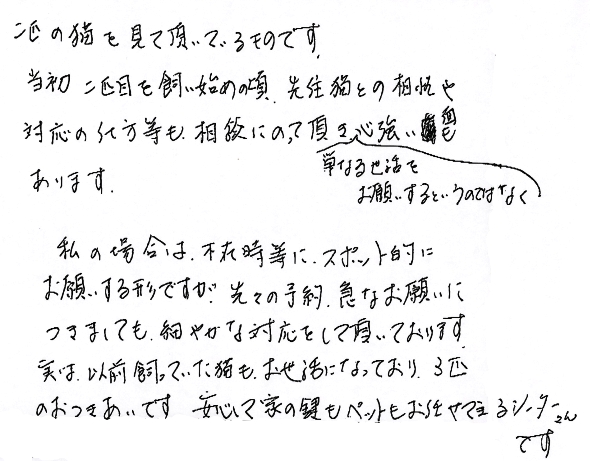 二匹の猫を見て頂いているものです。
当初 二匹目を飼い始めの頃、先住猫との相性や
対応の仕方等も、相談にのって頂き心強い面も
単なる世話を
お願いするというのではなく
あります。
私の場合は、不在時等に、スポット的に
お願いする形ですが、先々の予約、急なお願いに
つきましても、細やかな対応をして頂いております
実は、以前飼っていた猫も、お世話になっており、3匹
のおつきあいです 安心して家の鍵もペットもお任せできるシッターさん
です